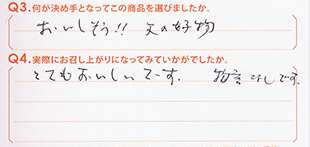 Q3.何が決め手となってこの商品を選びましたか。
おいしそう!! 父の好物
Q4.実際にお召し上がりになってみていかがでしたか。
とてもおいしいでーす. 物言なしです.